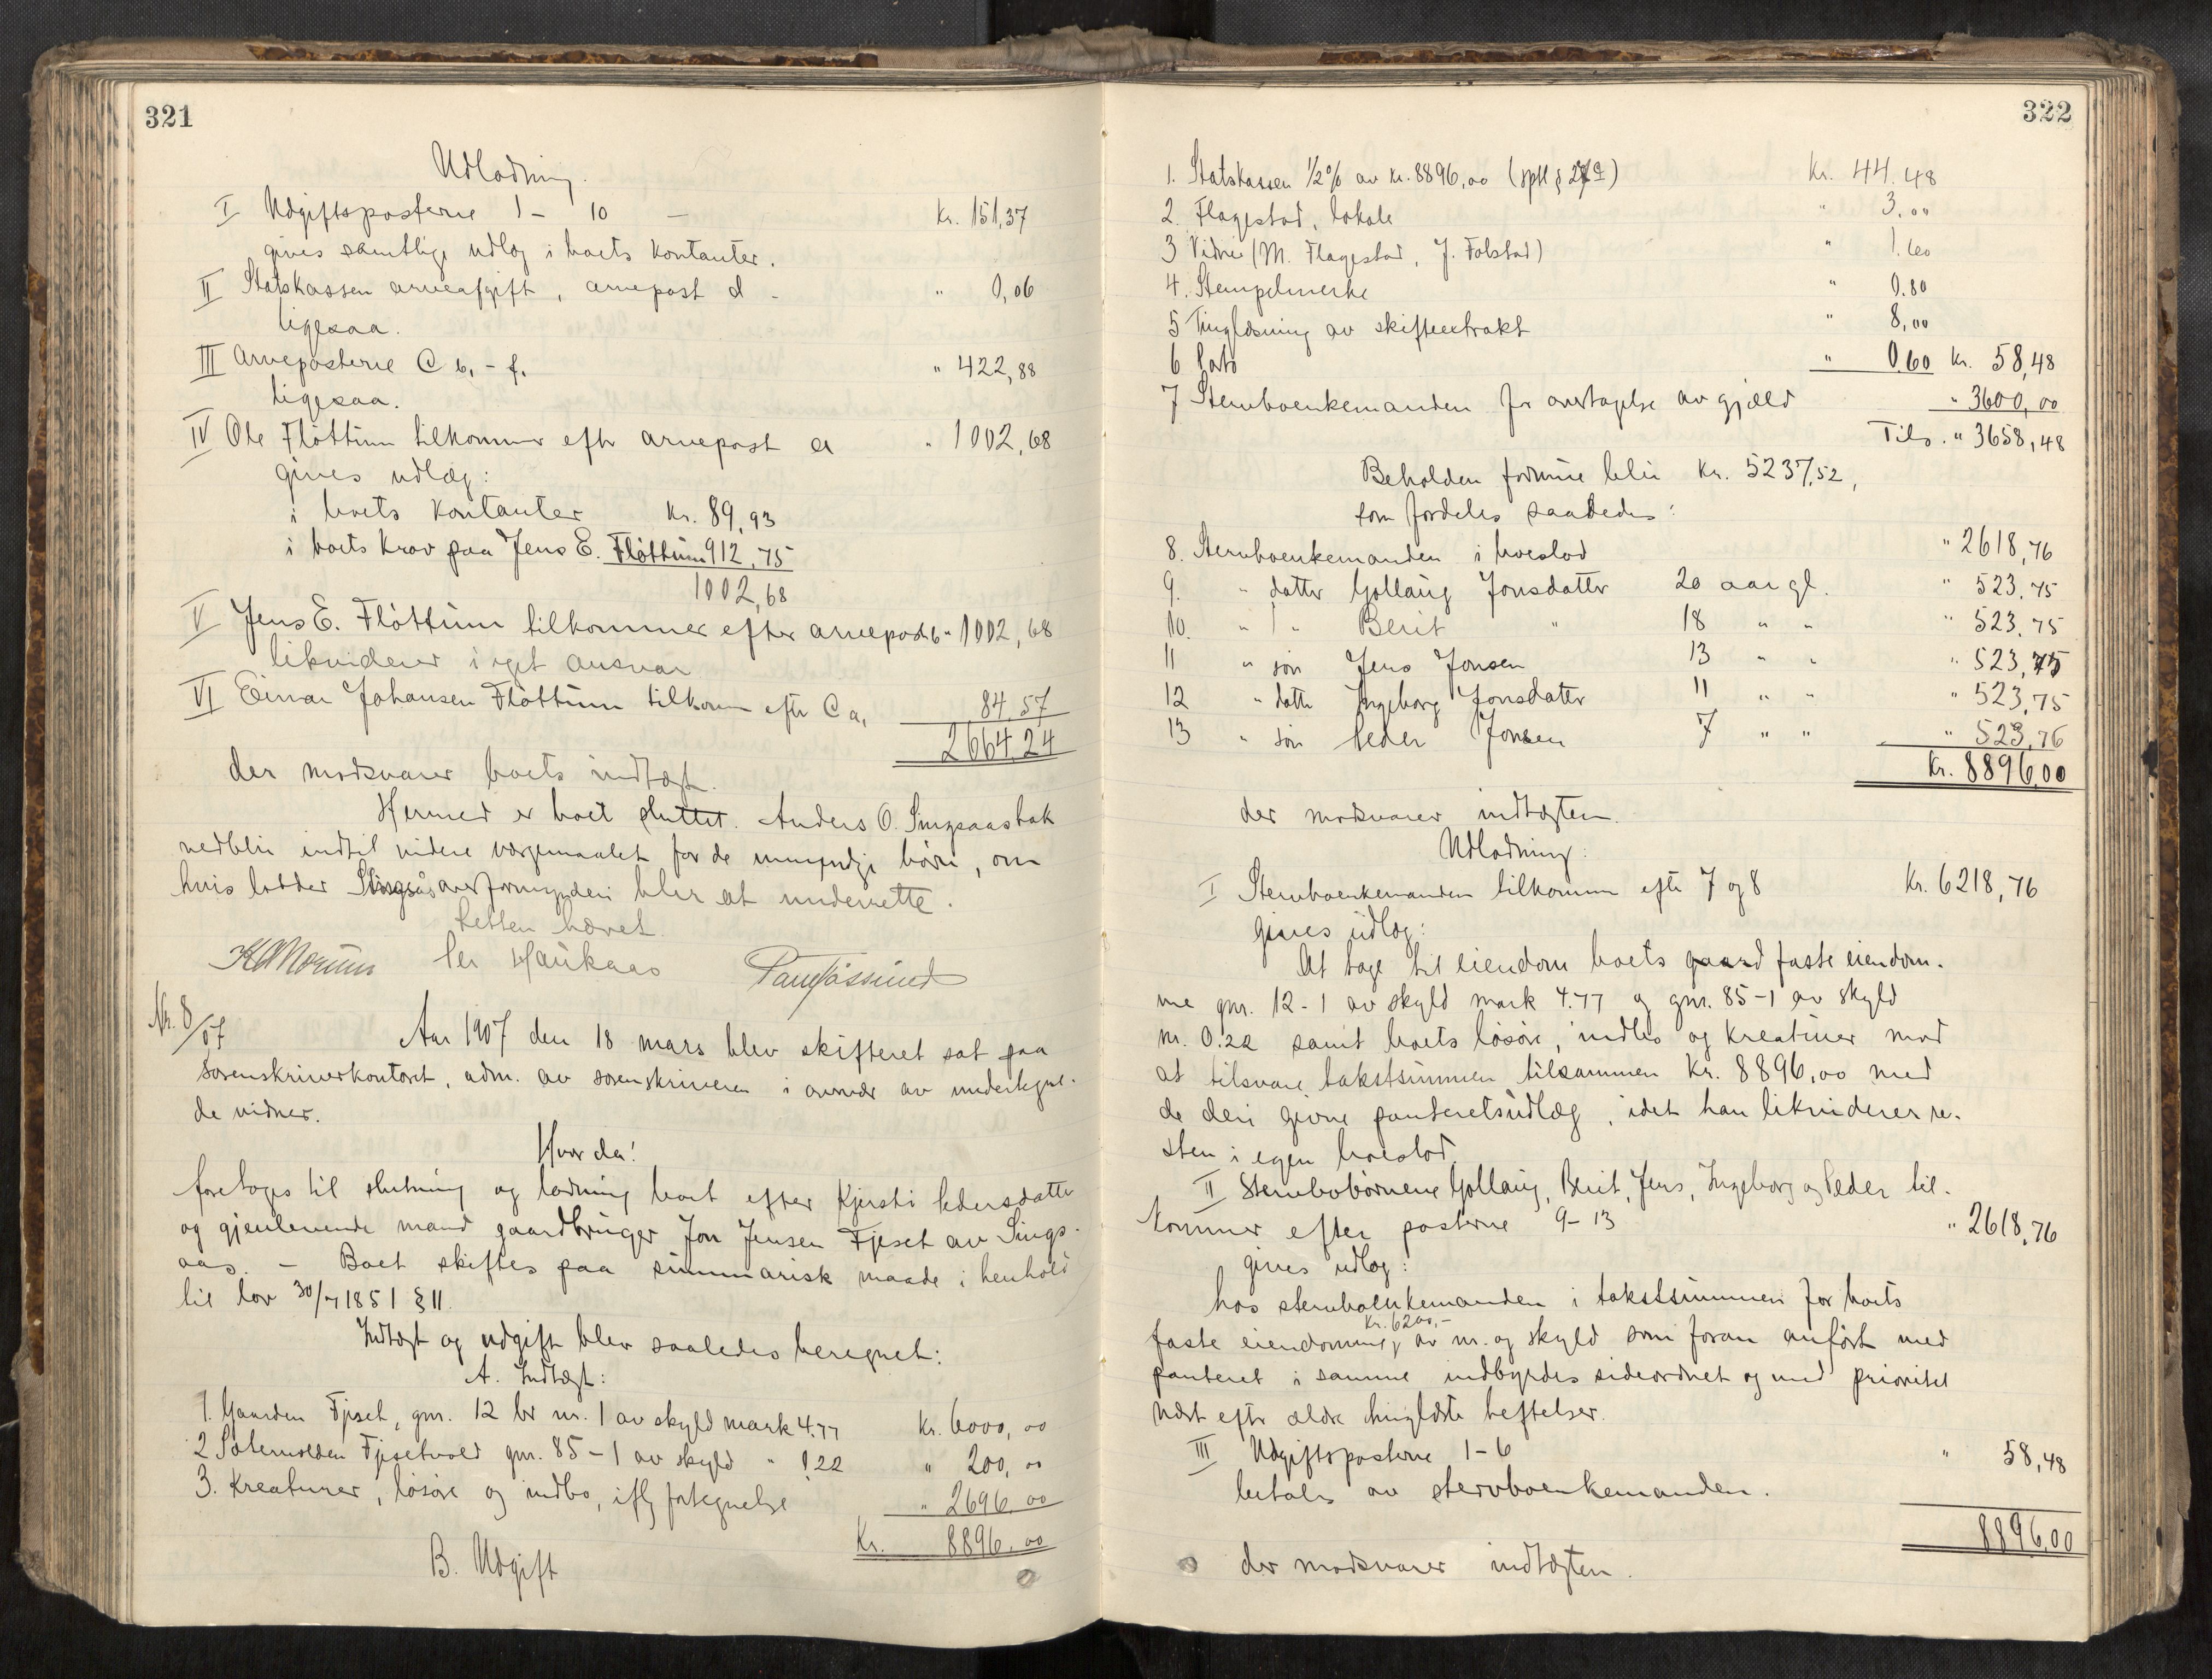 321
Udlodning.
I Udgiftsposterne 1 - 10 - Kr. 151,37
gives samtlige udlæg i boets kontanter.
II Statskassen arveafgift, arvepost d - " 0,06
ligesaa.
III Arveposterne C b, - f. " 422,88
ligesaa.
IV Ole Fløttum tilkommer efter arvepost a " 1002,68
gives udlæg:
i boets kontanter Kr. 89,93
i boets krav paa Jens E. Fløttum 912,75
1002,68
V Jens E. Fløttum tilkommer efter arvepost b " 1002,68
likviderer i eget ansvar
VI Einar Johansen Fløttum tilkom efter C a, 84,57
2664,24
der modsvarer boets indtægt.
Hermed er boet sluttet. Anders O. Singsaasbak
vedblir indtil videre værgemaalet for de umyndige børn, om
hvis lodder Singsås overformynderi blir at underrette.
Retten hævet.
Per Haukaas
Nr. 8/07
Aar 1907 den 18 mars blev skifteret sat paa
sorenskriverkontoret, adm. av sorenskriveren i overvær av undertegne-
de vidner.
Hvor da!
foretoges til slutning og lodning boet efter Kjersti Pedersdatter
og gjenlevende mand gaardbruger Jon Jensen Fjeset av Sings-
aas. - Boet skiftes paa summarisk maade i henhold
til lov 30/7 1851 § 11.
Indtægt og udgift blev saaledes beregnet:
A. Indtægt:
1. Gaarden Fjeset, gnr. 12 br nr. 1 av skyld mark 4.77 Kr. 6000,00
2 Sætervolden Fjesetvold gnr. 85-1 av skyld " 0.22 " 200,00
3. Kreaturer, løsøre og indbo, iflg fortegnelse " 2696,00
Kr. 8896,00
B. Udgift
322
1. Statskassen 1/2 % av kr. 8896,00 Kr. 44.48
2. Flagestad, lokale " 3,00
3 Vidner (M. Flagestad, J. Folstad) " 1.60
4. Stempelmerke " 0.80
5 Tinglæsning av skifteextrakt " 8,00
6 Porto " 0.60 Kr. 58,48
7 Stervboenkemanden for overtagelse av gjæld " 3600,00
Tils. " 3658,48
Beholden formue blir Kr. 5237,52,
som fordeles saaledes:
8. Stervboenkemanden i boeslod " 2618,76
9. " datter Gollaug Jonsdatter 20 aar gl. " 523,75
10. " " Berit " 18 " " " 523,75
11 " søn Jens Jonsen 13 " " " 523,75
12 " datter Ingeborg Jonsdatter 11 " " " 523,75
13 " søn Peder Jonsen 7 " " " 523,76
Kr. 8896,00
der modsvarer indtægten.
Udlodning:
I Stervboenkemanden tilkommer efter 7 og 8 Kr. 6218,76
gives udlæg:
At tage til eiendom boets gaard faste eiendom-
me gnr. 12-1 av skyld mark 4.77 og gnr. 85-1 av skyld
m. 0.22 samt boets løsøre, indbo og kreaturer mod
at tilsvare takstsummen tilsammen Kr. 8896,00 med
de deri givne panteretsudlæg, idet han likviderer re-
sten i egen boeslod.
II Stervbobørnene Gollaug, Berit, Jens, Ingeborg og Peder til-
kommer efter posterne 9-13 " 2618,76
gives udlæg:
hos stervboenkemanden i takstsummen for boets
faste eiendomme, Kr. 6200,- av nr. og skyld som foran anført med
panteret i samme indbyrdes sideordnet og med prioritet
næst efter ældre tinglæste heftelser.
III Udgiftsposterne 1-6 " 58,48
betales av stervboenkemanden.
8896,00
der modsvarer indtægten.